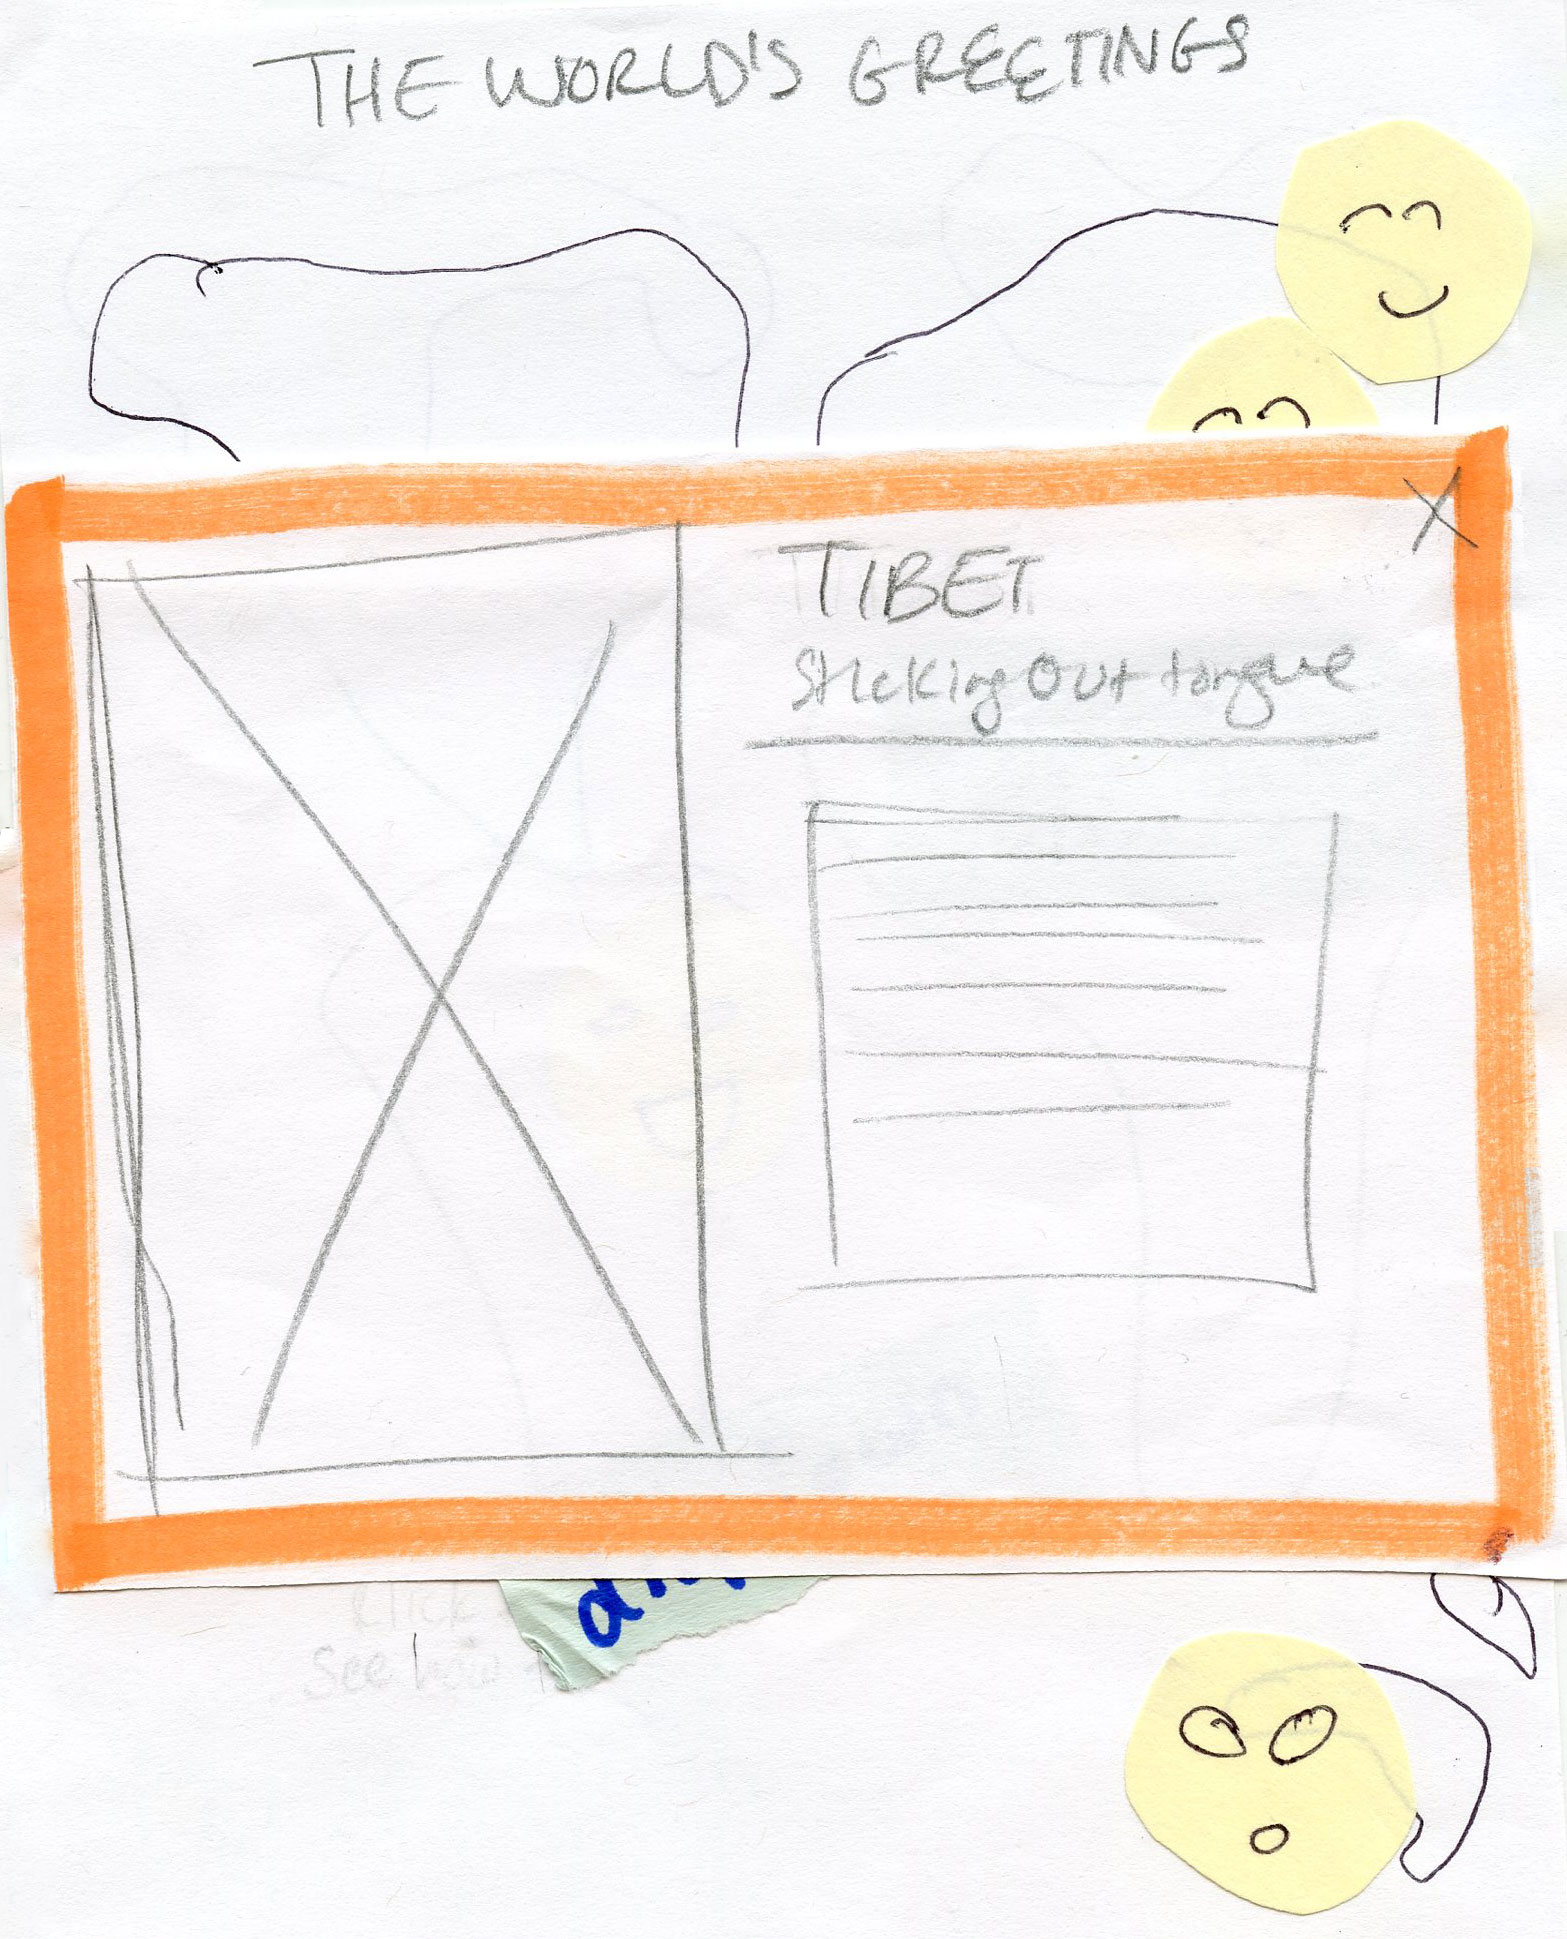 THE WORLD'S GREETINGS
X
TIBET
Sticking Out tongue
See